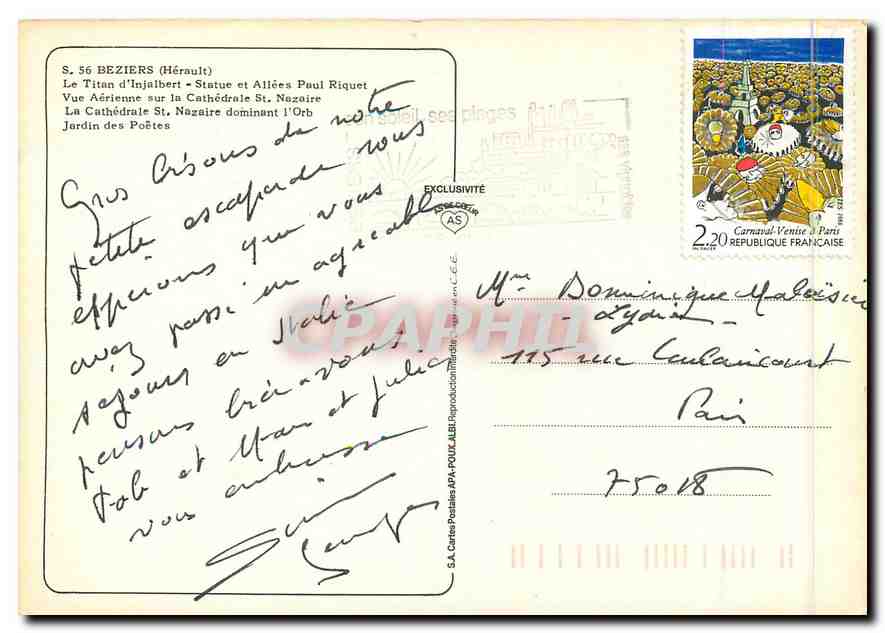 S. 56 BEZIERS (Hérault)
Le Titan d'Injalbert - Statue et Allées Paul Riquet
Vue Aérienne sur la Cathédrale St. Nazaire
La Cathédrale St. Nazaire dominant l'Orb
Jardin des Poëtes
Gros bisous de notre
petite escapade nous
espérons que vous
avez passé un agréable
séjours en Italie
pensons bien à vous
et et Julia
vous embrasse
son soleil, ses plages
EXCLUSIVITÉ
AS DE CŒUR
AS
S.A. Cartes Postales APA-POUX, ALBI. Reproduction Interdite
CPAPHIL
Carnaval-Venise à Paris
2,20 RÉPUBLIQUE FRANÇAISE
Mme Dominique
115 rue Caulaincourt
Paris
75018